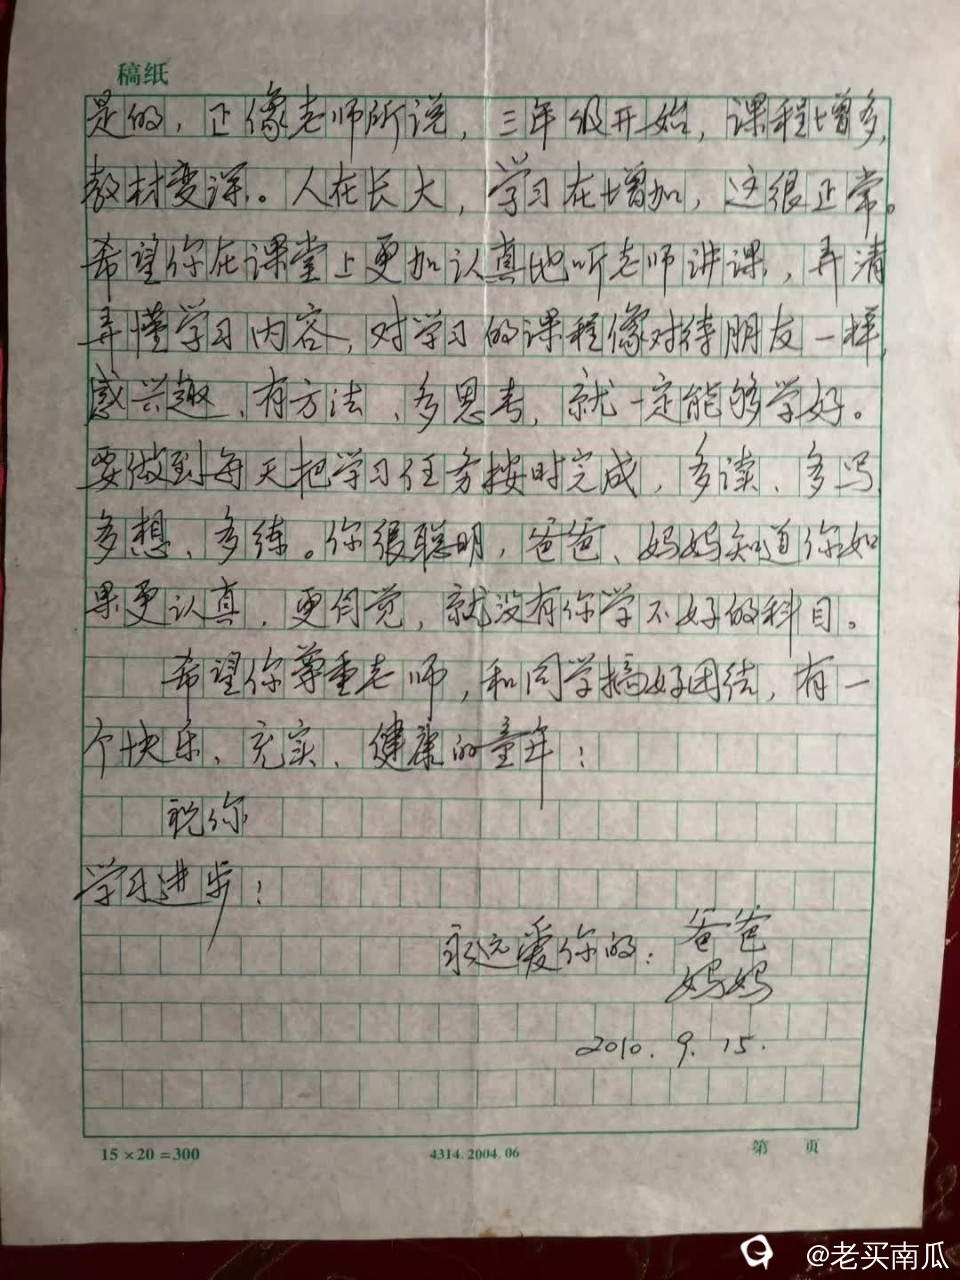 稿纸
是的，正像老师所说，三年级开始，课程增多，
教材变深。人在长大，学习在增加，这很正常。
希望你在课堂上更加认真地听老师讲课，弄清
弄懂学习内容，对学习的课程像对待朋友一样，
感兴趣、有方法、多思考，就一定能够学好。
要做到每天把学习任务按时完成，多读、多写
多想、多练。你很聪明，爸爸、妈妈知道你如
果更认真，更自觉，就没有你学不好的科目。
希望你尊重老师，和同学搞好团结，有一
个快乐、充实、健康的童年！
祝你
学习进步！
永远爱你的：爸爸
妈妈
2010.9.15.
15×20=300 4314.2004.06 第 页
@老买南瓜